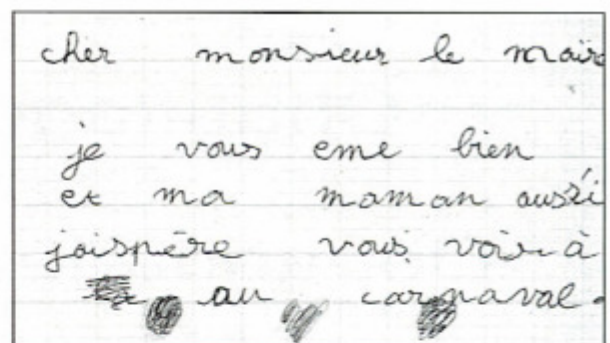 cher monsieur le maire
je vous eme bien
et ma maman aussi
jaispère vous voir à
au carnaval.